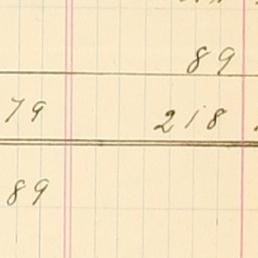 89
79 218
89